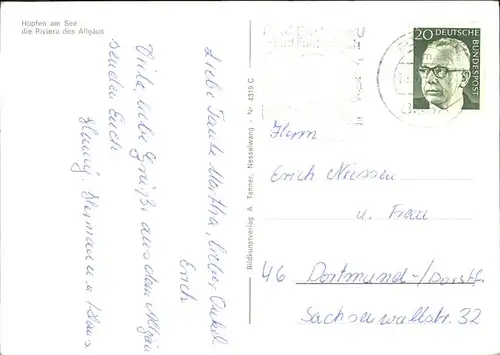 Hopfen am See
die Riviera des Allgäus
Liebe Tante Martha, lieber Onkel
Erich
Viele liebe Grüße aus dem Allgäu
senden Euch
Hermann u. Klaus
Bildkunstverlag A. Tanner, Nesselwang - Nr. 4319 C
20 DEUTSCHE
BUNDESPOST
Herrn
Erich Niessen
u. Frau
46 Dortmund-/Dorstf.
Sachsenwaldstr. 32